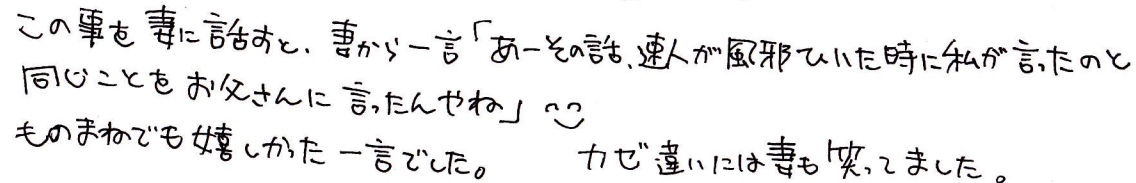 この事を妻に話すと、妻から一言「あーその話、速人が風邪ひいた時に私が言ったのと
同じことをお父さんに言ったんやね」
ものまねでも嬉しかった一言でした。 カゼ違いには妻も笑ってました。